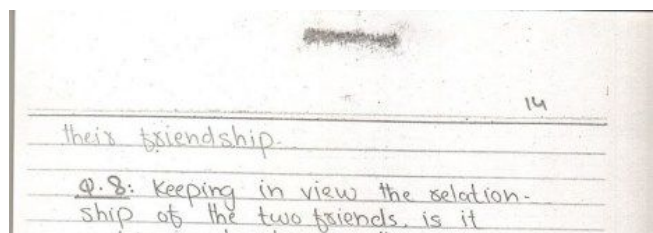 14
their friendship.
Q.8: Keeping in view the relation-
ship of the two friends, is it